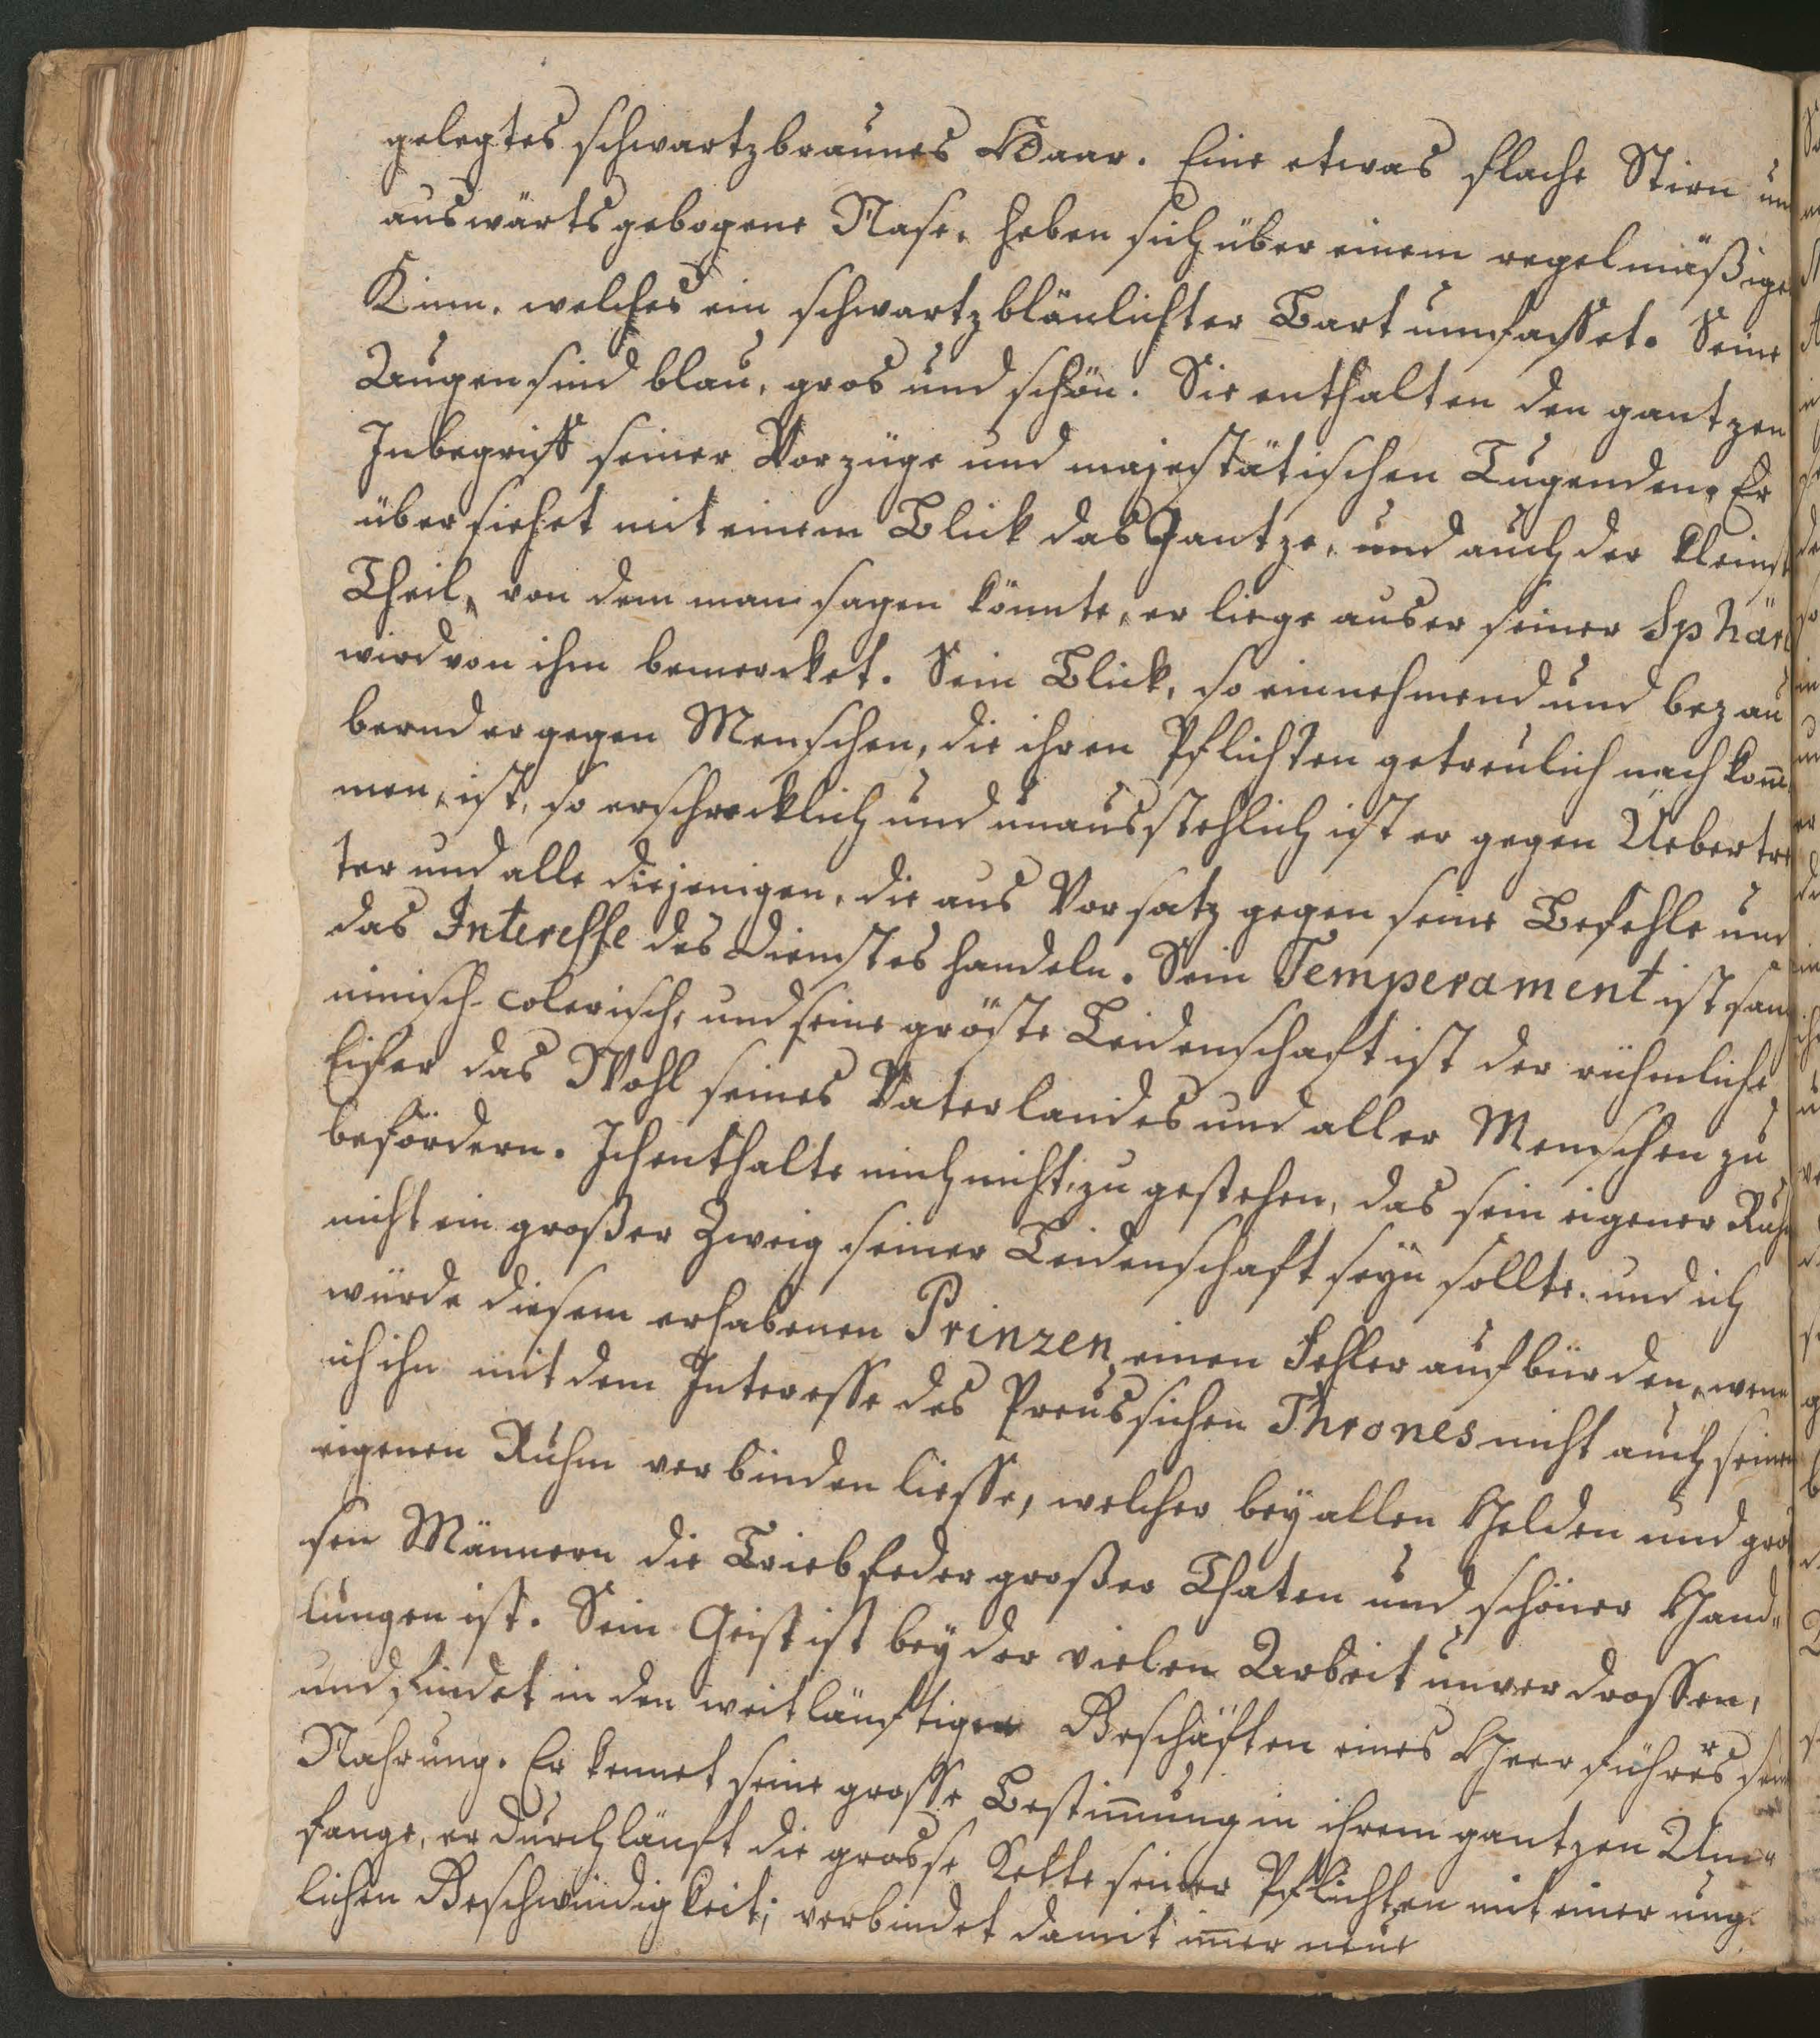 gelegtes schwartzbraunes Haar. Eine etwas flache Stirn un
auswärtsgebogene Nase, heben sich über einem regelmäßige
Kinn, welches ein schwartzbläulichter Bart umfasset. Seine
Augen sind blau, gros und schön. Sie enthalten den gantzen
Inbegriff seiner Vorzüge und majestätischen Tugenden. Er
übersiehet mit einem Blick das Gantze, und auch der kleinst
Theil, von dem man sagen könnte, er liege auser seiner Sphär
wird von ihm bemercket. Sein Blick, so einnehmend und bezau
bernd er gegen Menschen, die ihren Pflichten getreulich nachkom̄
men, ist, so erschrecklich und unausstehlich ist er gegen Uebertre
ter und alle diejenigen, die aus Vorsatz gegen seine Befehle und
das Interesse des Dienstes handeln. Sein Temperament ist san
ninisch-colerisch, und seine gröste Leidenschaft ist der rühmliche
Eifer das Wohl seines Vaterlandes und aller Menschen zu
befördern. Ich enthalte mich nicht, zu gestehen, das sein eigener Ruh
nicht ein großer Zweig seiner Leidenschaft seyn sollte, und ich
würde diesem erhabenen Prinzen einen Fehler aufbürden, wenn
ich ihn mit dem Interesse des Preussichen Thrones nicht auch seinen
eigenen Ruhm verbinden liesse, welcher bey allen Helden und gro
sen Männern die Triebfeder großer Thaten und schöner Hand„
lungen ist. Sein Geist ist bey der vielen Arbeit unverdrossen,
und findet in den weitläuftigen Geschäften eines Heerführers sein
Nahrung. Er kennet seine grosse Bestim̄ung in ihrem gantzen Um„
fange, er durchläuft die grosse Kette seiner Pflichten mit einer ung
lichen Geschwindigkeit; verbindet damit im̄er neue